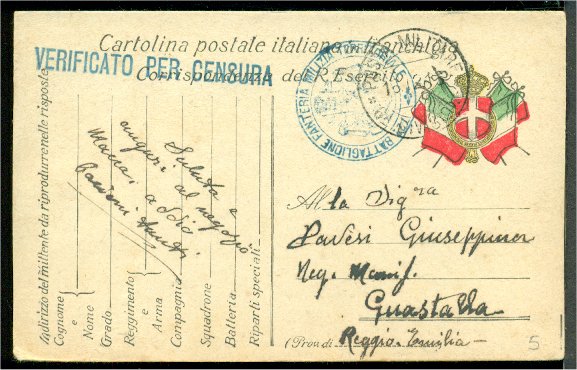 Cartolina postale italiana in franchigia
VERIFICATO PER CENSURA
Corrispondenza del R. Esercito
BATTAGLIONE FANTERIA MILIZIA
POSTA MILITARE
Indirizzo del mittente da riprodurre nelle risposte
Cognome
e
Nome
Grado
Reggimento
e
Arma
Compagnia
Squadrone
Batteria
Riparti speciali
Saluta e
auguri al negozio
addio
Alla Sigra
Pavesi Giuseppina
Neg. Manif.
Guastalla
(Prov. di Reggio-Emilia
5